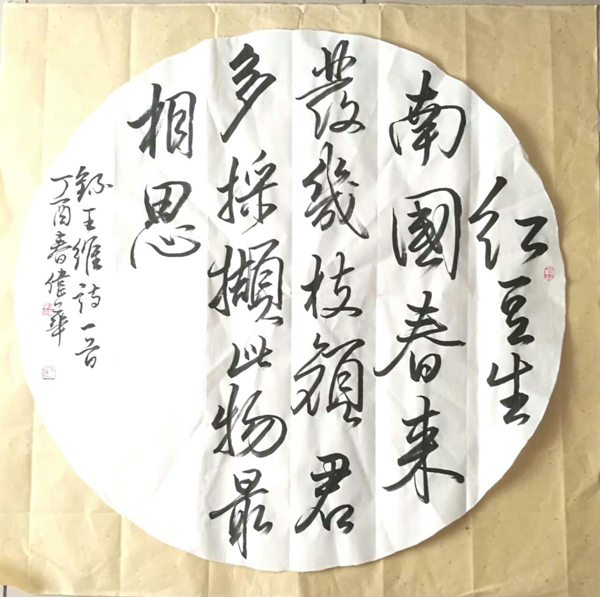 红豆生
南國春来
發幾枝願君
多採擷此物最
相思
錄王維詩一首
丁酉春偉華